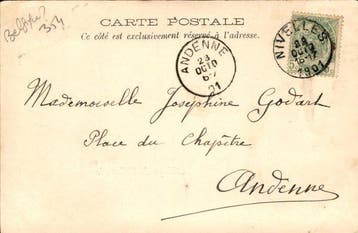 CARTE POSTALE
Ce côté est exclusivement réservé à l'adresse.
354
ANDENNE
23
OCTO
01
NIVELLES
OCTO
1901
Mademoiselle Joséphine Godart
Place du Chapître
Andenne